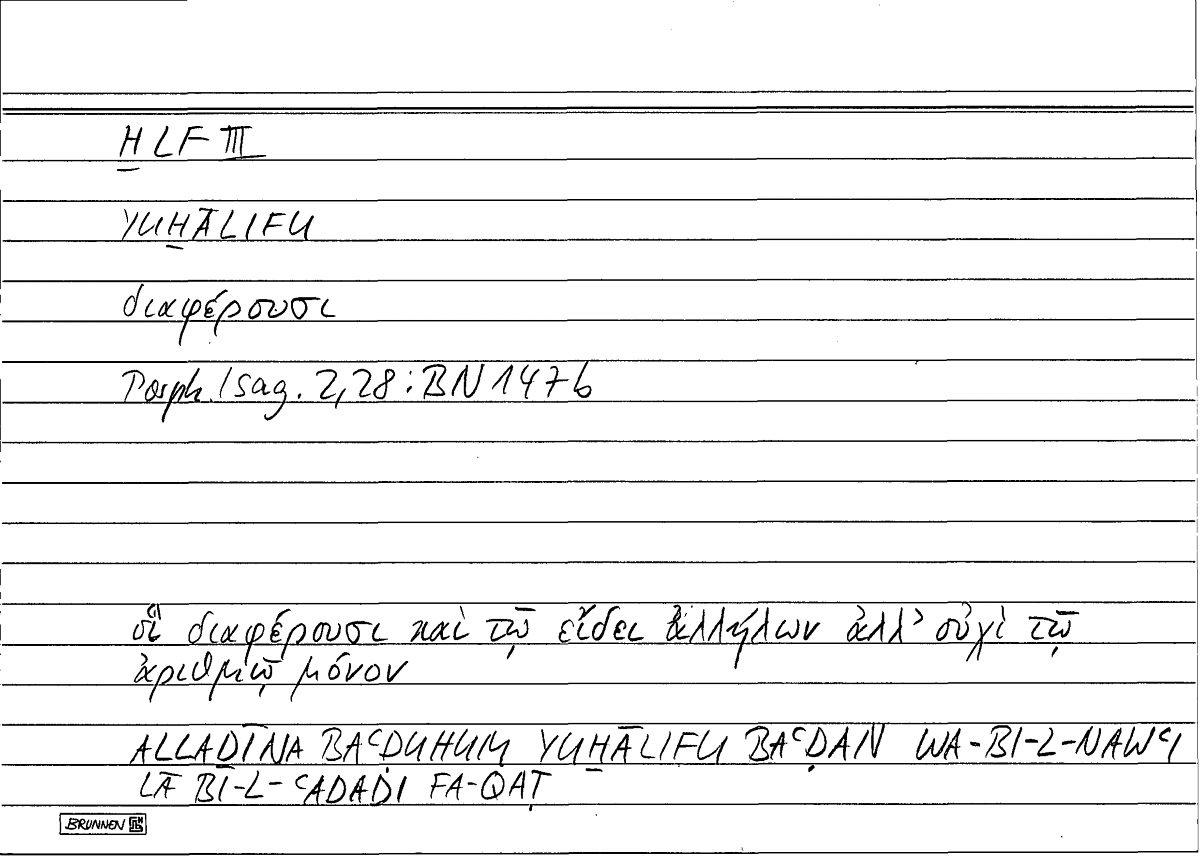 ḪLF III
YUḪĀLIFU
διαφέρουσι
Porph. Isag. 2,28 : BN 147b
οἳ διαφέρουσι καὶ τῷ εἴδει ἀλλήλων ἀλλ᾽ οὐχὶ τῷ
ἀριθμῷ μόνον
ALLAḎĪNA BAʿḌUHUM YUḪĀLIFU BAʿḌAN WA-BI-L-NAWʿI
LĀ BI-L-ʿADADI FA-QAṬ
BRUNNEN